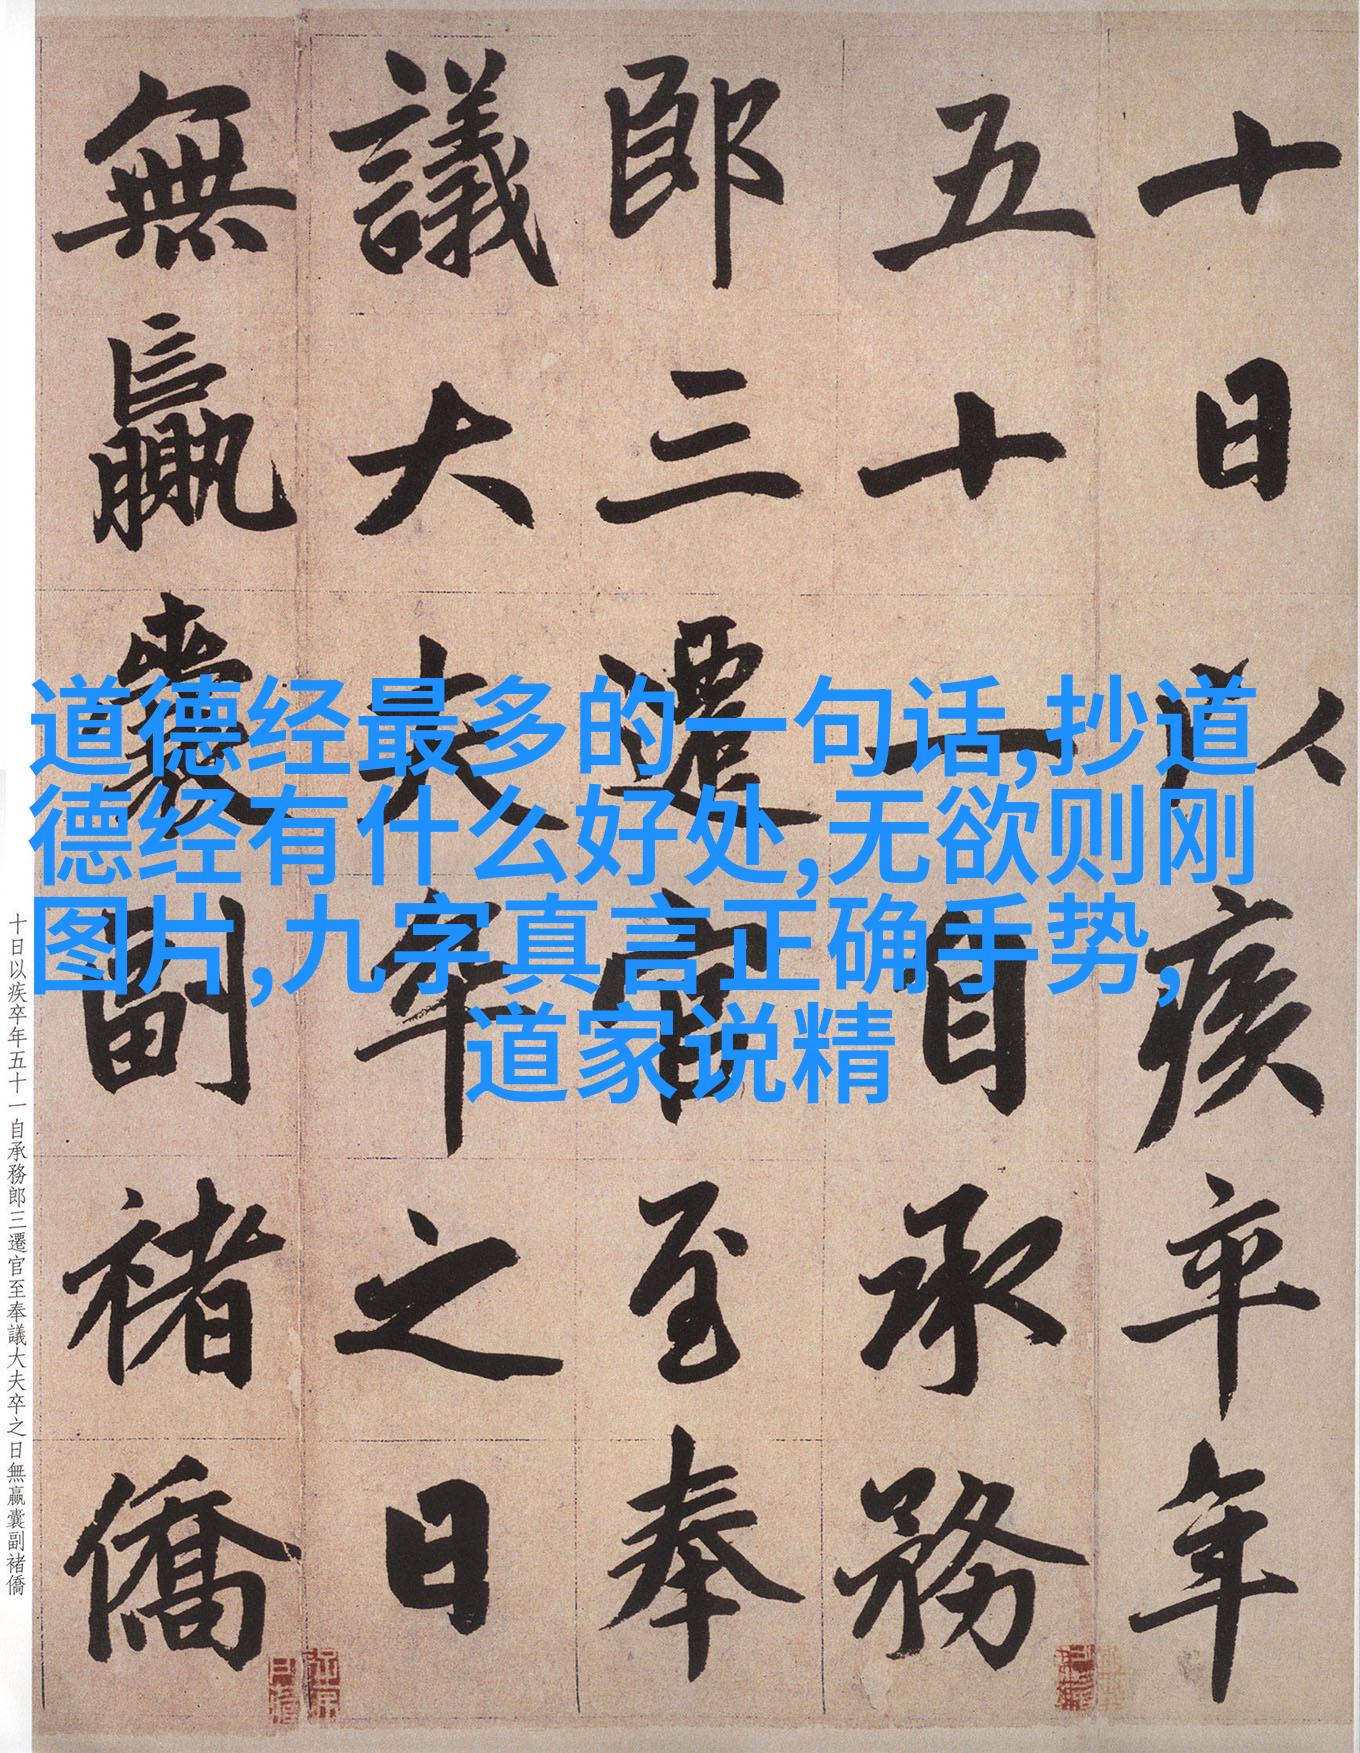 十日以疾卒年
五十一自承務
郎三遷官至奉
議大夫卒之日
無贏囊副褚僑
道德经最多的一句话,抄道
德经有什么好处,无欲则刚
图片,九字真言正确手势,
道家说精
十日以疾卒年五十一自承務郎三遷官至奉議大夫卒之日無贏囊副褚僑